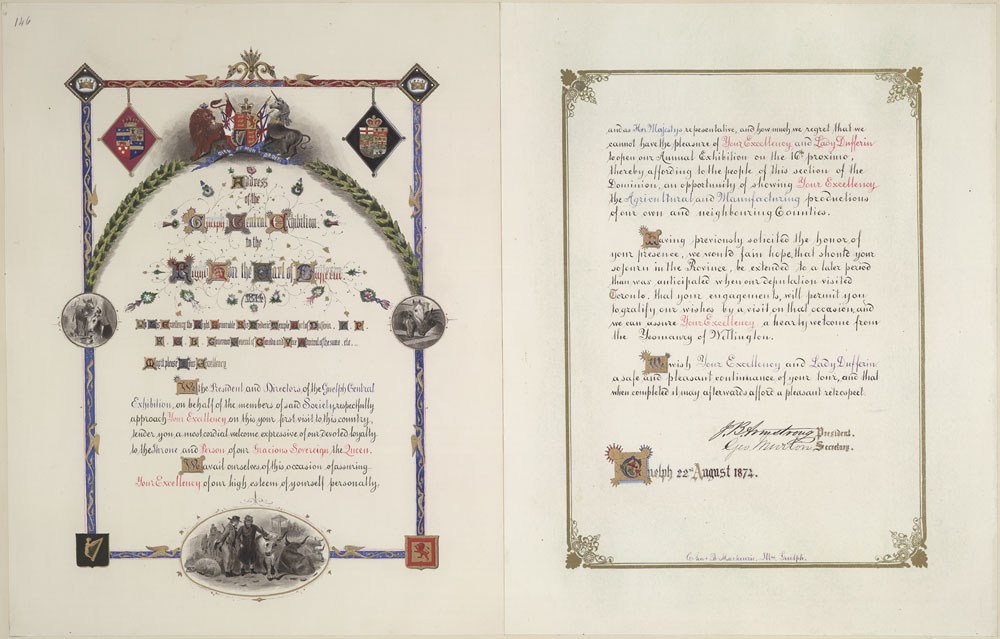 146
Address
of the
Guelph Central Exhibition
to the
Right Hon the Earl of Dufferin
1874
To His Excellency the Right Honorable Sir Frederic Temple Earl of Dufferin K P
K C B Governor General of Canada and Vice Admiral of the same etc
May it please Your Excellency
We the President and Directors of the Guelph Central
Exhibition, on behalf of the members of said Society, respectfully
approach Your Excellency, on this your first visit to this country,
tender you a most cordial welcome expressive of our devoted loyalty
to the throne and Person of our Gracious Sovereign, the Queen.
We avail ourselves of this occasion of assuring
Your Excellency of our high esteem of yourself personally,
and as Her Majestys representative, and how much we regret that we
cannot have the pleasure of Your Excellency and Lady Dufferin
to open our Annual Exhibition on the 16th proximo,
thereby affording to the people of this section of the
Dominion, an opportunity of showing Your Excellency
the Agricultural and Manufacturing productions
of our own and neighbouring Counties.
Having previously solicited the honor of
your presence, we would fain hope, that should your
sojourn in the Province, be extended to a later period
than was anticipated when our deputation visited
Toronto, that your engagements, will permit you
to gratify our wishes by a visit on that occasion, and
we can assure Your Excellency, a hearty welcome from
the Yeomanry of Wellington.
We wish Your Excellency and Lady Dufferin
a safe and pleasant continuance of your tour, and that
when completed it may afterwards afford a pleasant retrospect.
J. B. Armstrong President.
Geo Murton Secretary.
Guelph 22nd August 1874.
Chas B Mackenzie, Guelph.